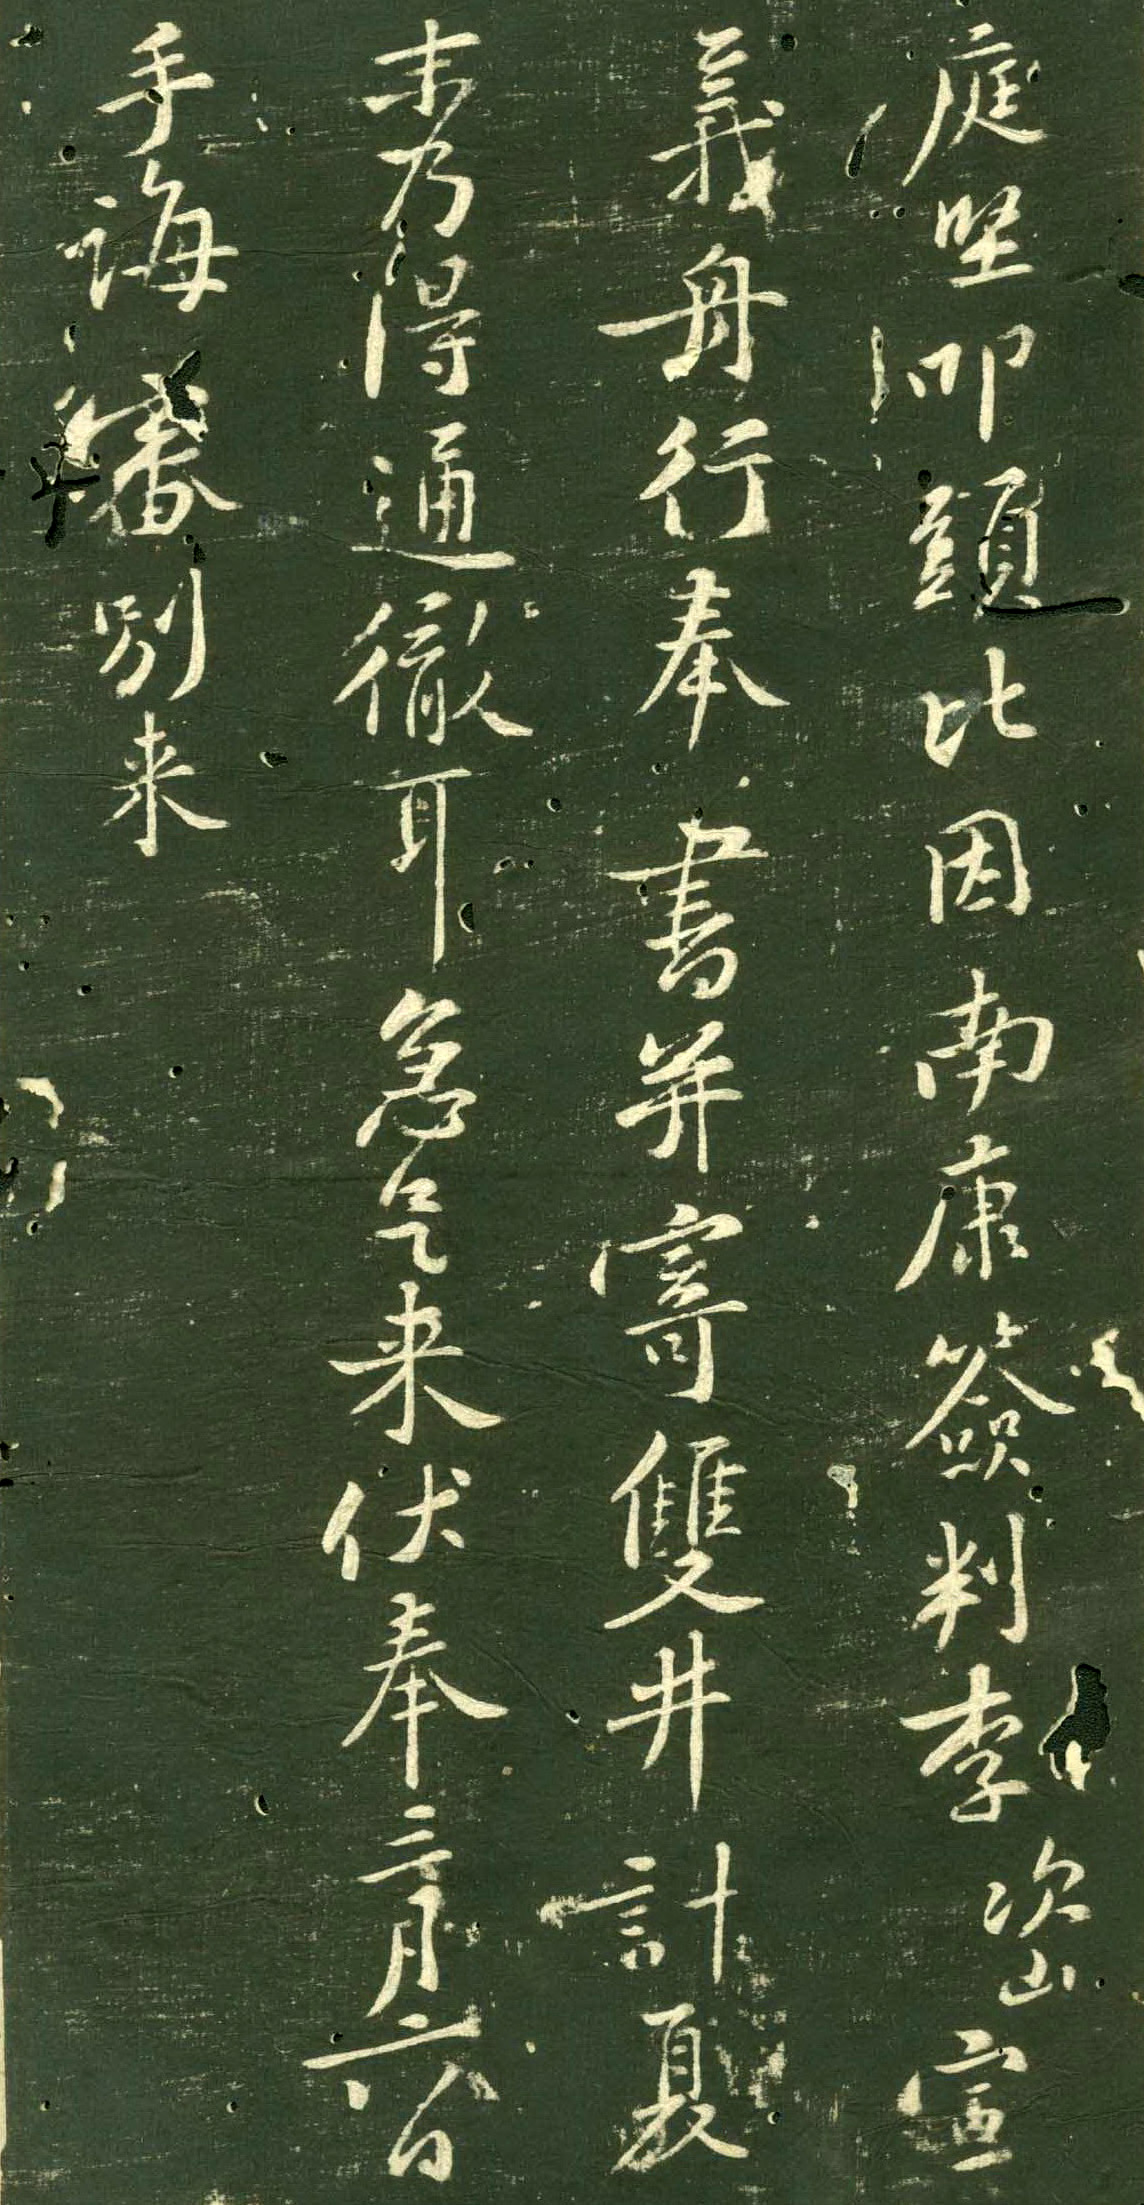 庭堅叩頭比因南康簽判李次山宣
義舟行奉書并寄雙井計夏
末乃得通徹耳急足來伏奉三月六日
手誨審別来